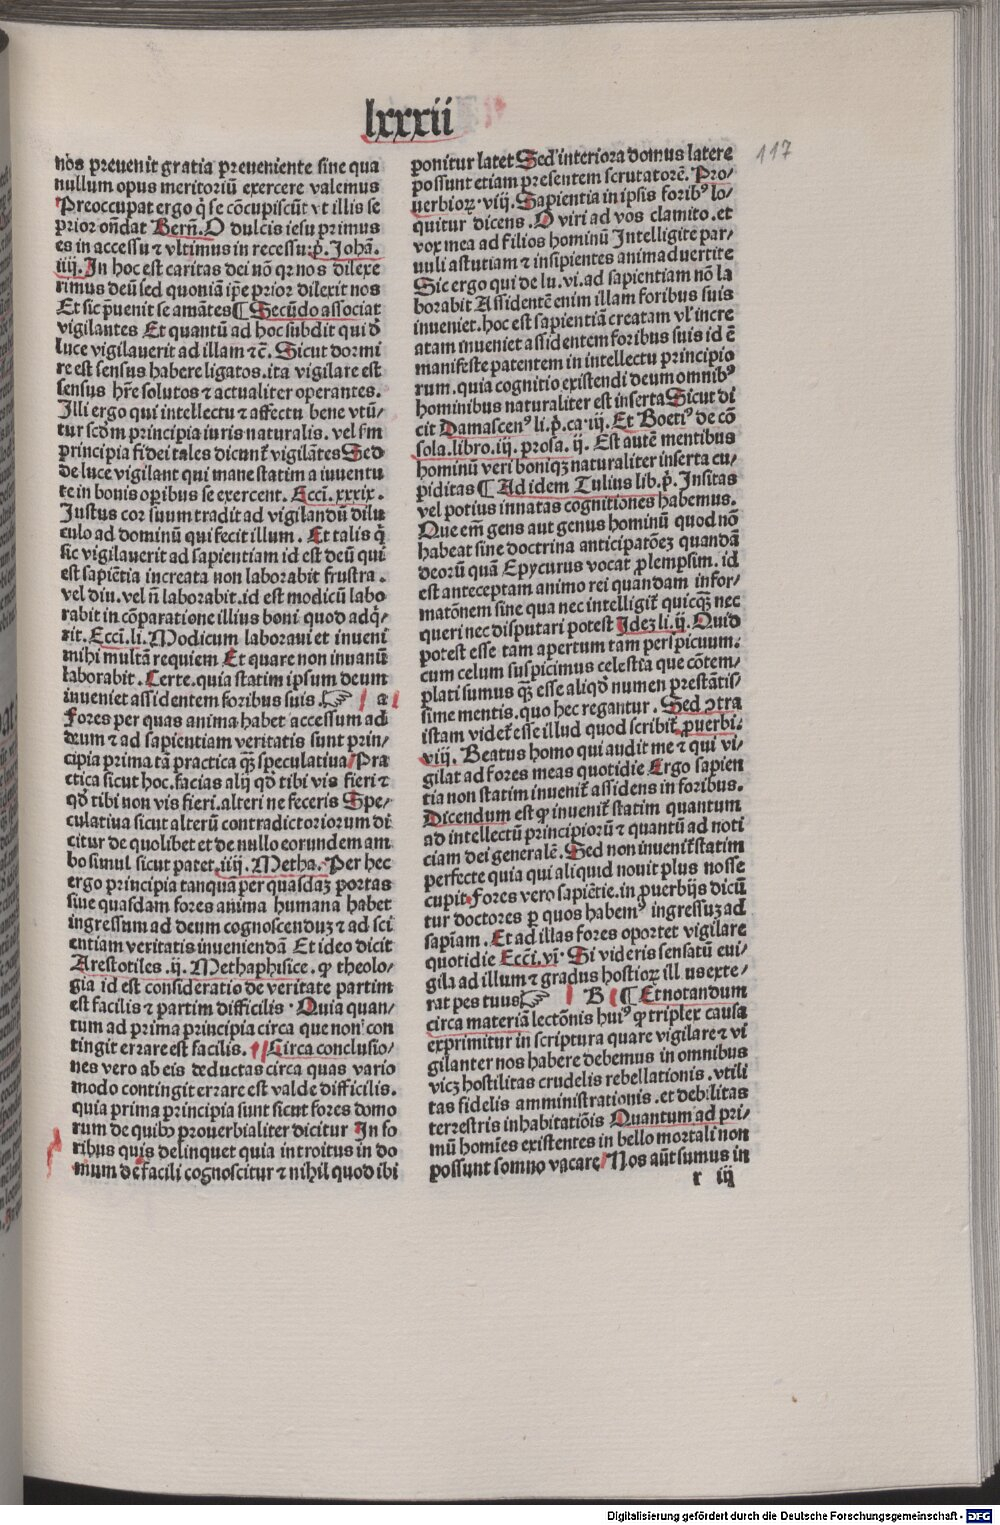 lxxxii
117
nos preuenit gratia preueniente sine qua
nullum opus meritoriū exercere valemus
Preoccupat ergo q̇ se cōcupiscūt vt illis se
prior oñdat Berñ. O dulcis iesu primus
es in accessu ⁊ vltimus in recessu: p̊. Johā.
iiij. In hoc est caritas dei nō qꝛ nos dilexe
rimus deū sed quoniā ip̄e prior dilexit nos
Et sic p̄uenit se amātes ¶ Secūdo associat
vigilantes Et quantū ad hoc subdit qui d̓
luce vigilauerit ad illam ⁊c̄. Sicut dormi
re est sensus habere ligatos. ita vigilare est
sensus hr̄e solutos ⁊ actualiter operantes.
Illi ergo qui intellectu ⁊ affectu bene vtū/
tur scd̓m principia iuris naturalis. vel fm
principia fidei tales dicunt᷑ vigilātes Sed
de luce vigilant qui mane statim a iuuentu
te in bonis oꝑibus se exercent. Ecci̅. xxxix.
Justus cor suum tradit ad vigilandū dilu
culo ad dominū qui fecit illum. Et talis q̇
sic vigilauerit ad sapientiam id est deū qui
est sapiētia increata non laborabit frustra.
vel diu. vel ñ laborabit. id est modicū labo
rabit in cōparatione illius boni quod adq̇/
rit. Ecci̅. li. Modicum laboraui et inueni
mihi multā requiem Et quare non inuanū
laborabit. Certe. quia statim ipsum deum
inueniet assidentem foribus suis. ☞ a
Fores per quas anima habet accessum ad
deum ⁊ ad sapientiam veritatis sunt prin/
cipia prima tā practica q̄ȝ speculatiua Pra
ctica sicut hoc. facias alij qd̓ tibi vis fieri ⁊
qd̓ tibi non vis fieri. alteri ne feceris Spe/
culatiua sicut alterū contradictoriorum di
citur de quolibet et de nullo eorundem am
bo simul sicut patet. iiij. Metha. Per hec
ergo principia tanquā per quasdaȝ portas
siue quasdam fores anima humana habet
ingressum ad deum cognoscenduȝ ⁊ ad sci
entiam veritatis inueniendā Et ideo dicit
Arestotiles. ij. Methaphisice. ꝙ theolo/
gia id est consideratio de veritate partim
est facilis ⁊ partim difficilis. Quia quan/
tum ad prima principia circa que non con
tingit errare est facilis. ¶ Circa conclusio/
nes vero ab eis deductas circa quas vario
modo contingit errare est valde difficilis.
quia prima principia sunt sicut fores domo
rum de quibꝰ prouerbialiter dicitur In fo
ribus quis delinquet quia introitus in do
mum de facili cognoscitur ⁊ nihil quod ibi
ponitur latet Sed interiora domus latere
possunt etiam presentem scrutatorē. Pro/
uerbioꝝ. viij. Sapientia in ipsis foribꝰ lo/
quitur dicens. O viri ad vos clamito. et
vox mea ad filios hominū Intelligite par/
uuli astutiam ⁊ insipientes animaduertite
Sic ergo qui de lu. vi. ad sapientiam nō la
borabit Assidentē enim illam foribus suis
inueniet. hoc est sapientiā creatam vl̓ incre
atam inueniet assidentem foribus suis id ē
manifeste patentem in intellectu principio
rum. quia cognitio existendi deum omnibꝰ
hominibus naturaliter est inserta Sicut di
cit Damascenꝰ li. p̊. ca. iij. Et Boetiꝰ de cō
sola. libro. iij. prosa. ij. Est autē mentibus
hominū veri boniqȝ naturaliter inserta cu/
piditas ¶ Ad idem Tulius lib. p̊. Insitas
vel potius innatas cognitiones habemus.
Que em̄ gens aut genus hominū quod nō
habeat sine doctrina anticipatōeȝ quandā
deorū quā Epycurus vocat ꝓlempsim. id
est anteceptam animo rei quandam infor/
matōnem sine qua nec intelligit᷑ quicq̄ȝ nec
queri nec disputari potest Ideȝ li. ij. Quid
potest esse tam apertum tam perspicuum.
cum celum suspicimus celestia que cōtem/
plati sumus q̄ȝ esse aliqd̓ numen prestātis/
sime mentis. quo hec regantur. Sed ↄtra
istam videt᷑ esse illud quod scribit᷑ ꝓuerbi.
viij. Beatus homo qui audit me ⁊ qui vi/
gilat ad fores meas quotidie Ergo sapien
tia non statim inuenit᷑ assidens in foribus.
Dicendum est ꝙ inuenit᷑ statim quantum
ad intellectū principiorū ⁊ quantū ad noti
ciam dei generalē. Sed non inuenit᷑ statim
perfecte quia qui aliquid nouit plus nosse
cupit Fores vero sapiētie. in ꝓuerbijs dicū
tur doctores ꝑ quos habemꝰ ingressuȝ ad
sapiam. Et ad illas fores oportet vigilare
quotidie Ecci̅. vi. Si videris sensatū eui/
gila ad illum ⁊ gradus hostioꝝ illius exte/
rat pes tuus ☞ B ¶ Et notandum
circa materiā lectōnis huiꝰ ꝙ triplex causa
exprimitur in scriptura quare vigilare ⁊ vi
gilanter nos habere debemus in omnibus
vicȝ hostilitas crudelis rebellationis. vtili
tas fidelis amministrationis. et debilitas
terrestris inhabitatiōis Quantum ad pri/
mū homīes existentes in bello mortali non
possunt somno vacare Nos aūt sumus in
r iij
Digitalisierung gefördert durch die Deutsche Forschungsgemeinschaft - DFG